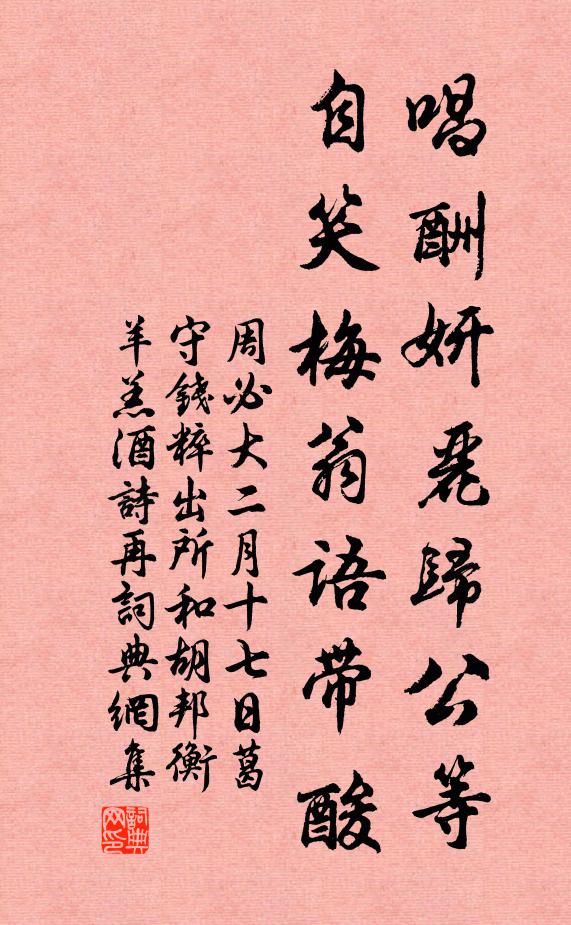 唱酬妍麗歸公等
自笑梅翁語帶酸
周必大二月十七日葛
守錢粹出所和胡邦衡
羊羔酒詩再詞典網集
詞典网印